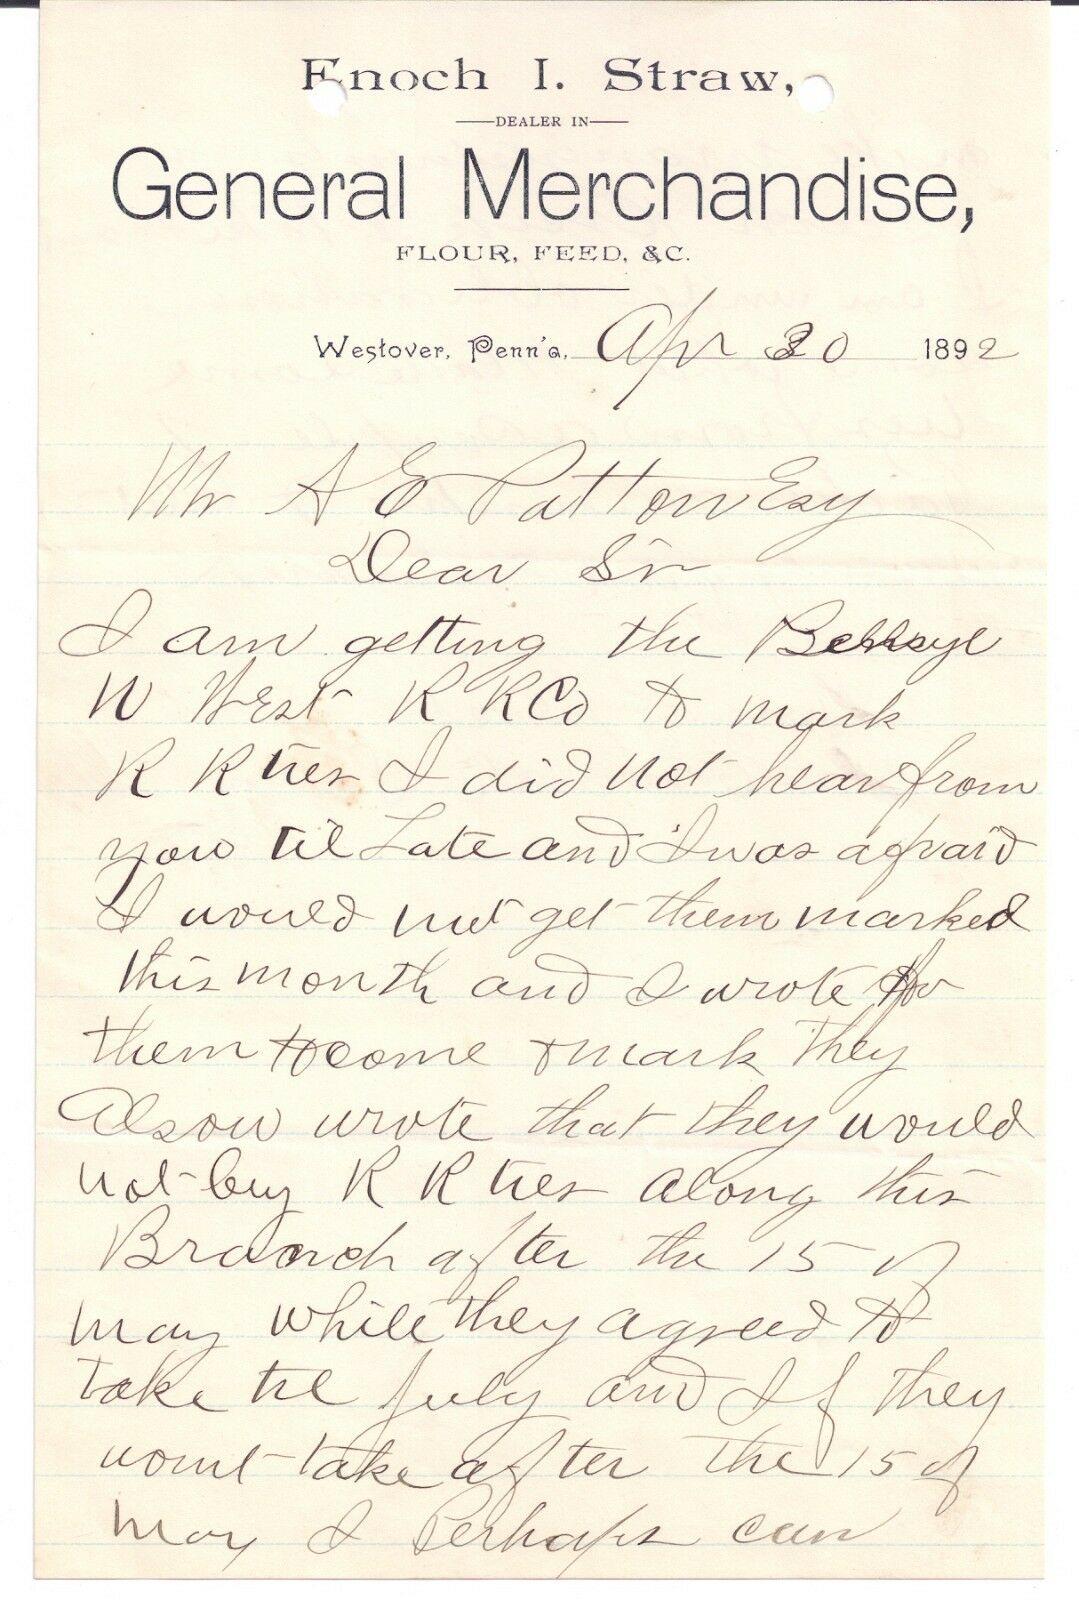 Enoch I. Straw,
DEALER IN
General Merchandise,
FLOUR, FEED, &C.
Westover, Penn'a, Apr 30 1892
Mr A E Patton Esq
Dear Sir
I am getting the
N West R R Co to mark
R R ties I did not hear from
you til Late and I was afraid
I would not get them marked
this month and I wrote for
them to come & mark They
Alsow wrote that they would
not buy R R ties along this
Branch after the 15 of
may while they agreed to
take til july and If they
wount take after the 15 of
may I Perhaps can